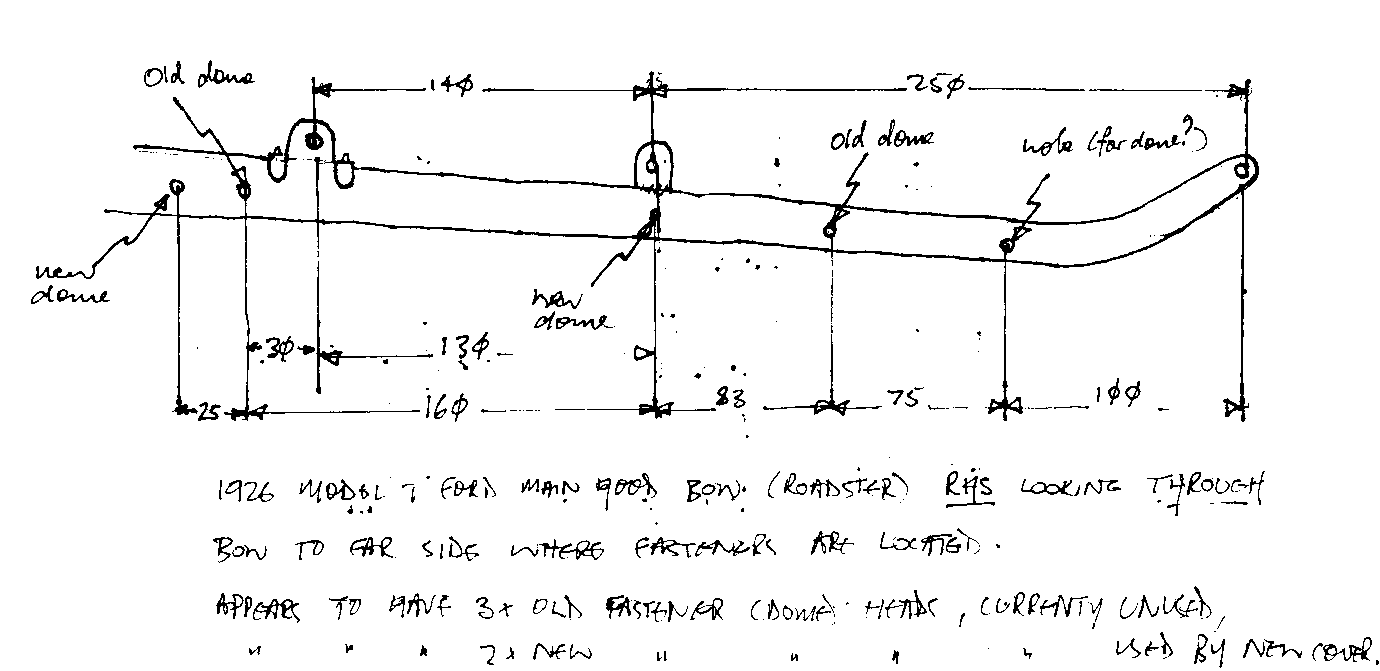 Old dome
14φ
25φ
old dome
hole (for dome?)
new
dome
new
dome
3φ
13φ
25
16φ
83
75
1φφ
1926 MODEL T FORD MAIN HOOD BOW. (ROADSTER) RHS LOOKING THROUGH
BOW TO FAR SIDE WHERE FASTENERS ARE LOCATED.
APPEARS TO HAVE 3x OLD FASTENER (DOME) HEADS, CURRENTY UNUSED,
" " " 2x NEW " " " " USED BY NEW COVER.